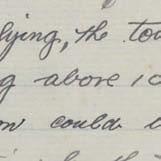 lying, the to
g above 10
on could b